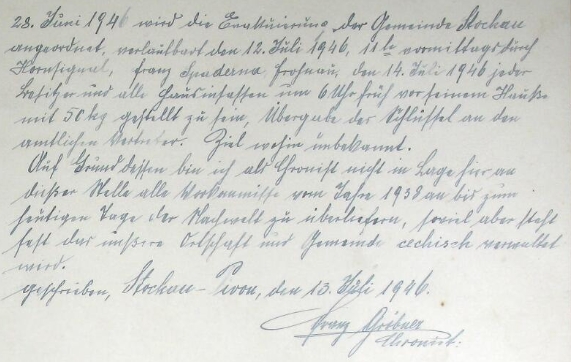 28. Juni 1946 wird die Evakuierung der Gemeinde Stockau
angeordnet, verlautbart den 12. Juli 1946, 11 vormittags durch
Hornsignal, franz frohnau, den 14. Juli 1946 jeder
Besitzer und alle Hausinsassen um 6 Uhr früh vor seinem Hauße
mit 50 kg gestellt zu sein, Übergabe der Schlüssel an den
amtlichen Vertreter. Ziel wohin unbekannt.
Auf Grund dessen bin ich als Chronist nicht in Lage hir an
dießer Stelle alle Vorkomniße vom Jahre 1938 an bis zum
heutigen Tage der Nachwelt zu überliefern, soviel aber steht
fest das unßere Ortschaft und Gemeinde cechisch verwaltet
wird.
geschrieben, Stockau - Pivon, den 13. Juli 1946.
Franz Gröbner
Chronist.